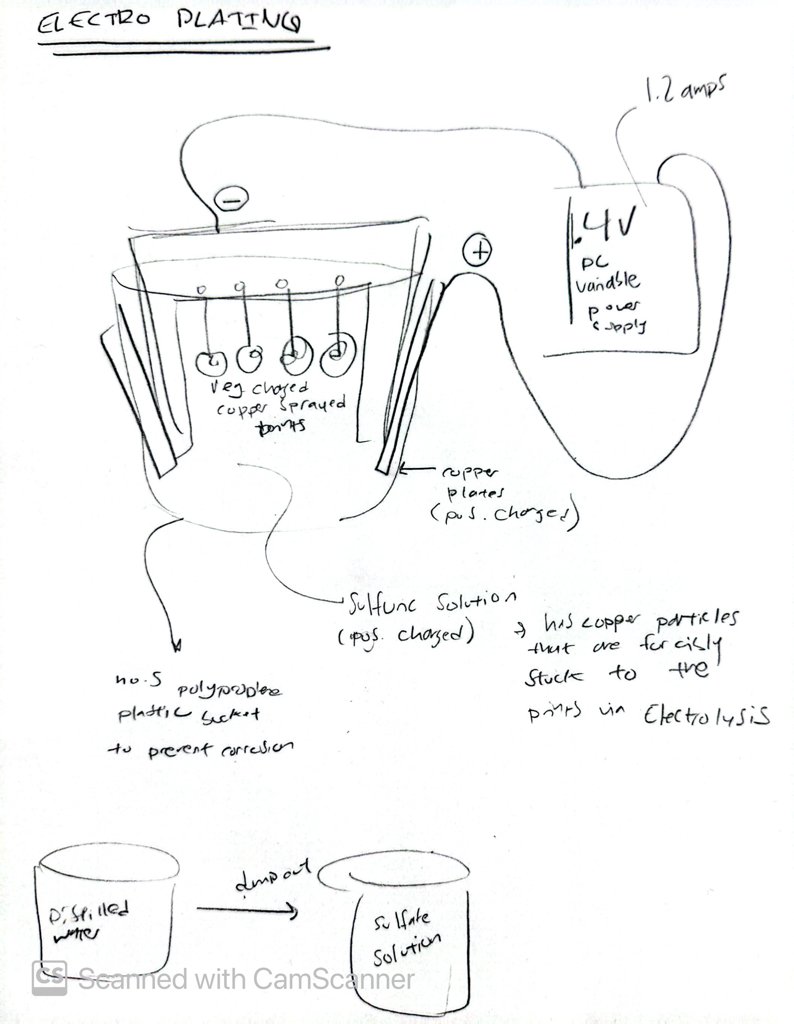 ELECTRO PLATING
1.2 amps
−
+
1.4V
DC
variable
power
supply
neg. charged
copper sprayed
prints
copper
plates
(pos. charged)
Sulfuric Solution
(pos. charged)
→ has copper particles
that are forcibly
stuck to the
prints via Electrolysis
no.5
plastic bucket
to prevent corrosion
Distilled
water
dump out
Sulfate
Solution
CS Scanned with CamScanner